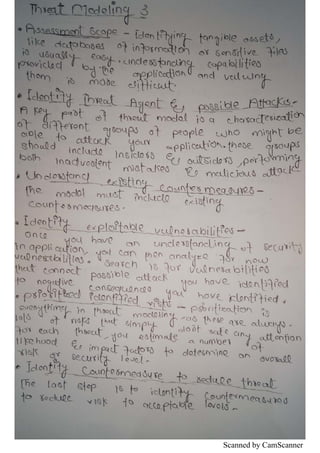 Threat Modeling 3
• Assessment Scope - Identifying tangible assets,
like databases of information or sensitive files
is usually easy. understanding capabilities
provided by the application and valuing
them is more difficult.
• Identity Threat Agent & possible Attacks -
A key part of threat model is a characterization
of different groups of people who might be
able to attack your application. these groups
should include Insiders & outsiders, performing
both inadvertent mistakes & malicious attack
• Understand existing countermeasures -
the model must include existing
countermeasures.
• Identity exploitable vulnerabilities -
once you have an understanding of security
in application, you can then analyze for new
vulnerabilities. search is for vulnerabilities
that connect possible attack you have identified
to negative consequences you have identified.
• prioritized identified risks - prioritization is
everything in threat modeling - as there are always
lots of risks that simply don't rate any attention
for each threat, you estimate a number of
likelihood & impact factors to determine an overall
risk or security level.
• Identity Countermeasure to reduce threat
The last step is to identity countermeasures
to reduce risk to acceptable levels -
Scanned by CamScanner